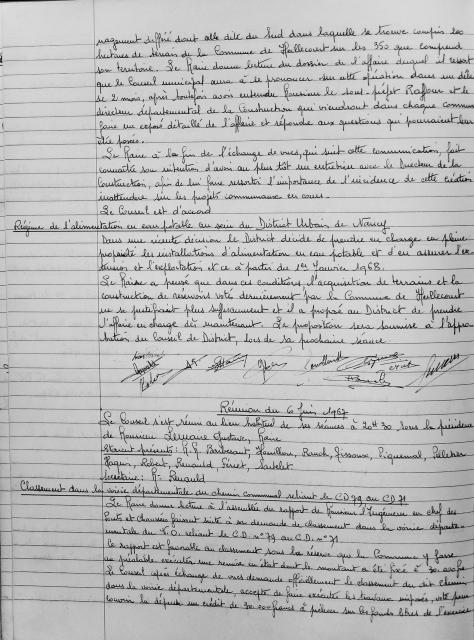 nagement différé dont elle dite du Sud dans laquelle se trouve compris 200
hectares de terrain de la Commune de Heillecourt sur les 350 que comprend
son territoire. Le Maire donne lecture du dossier de l'affaire duquel il ressort
que le Conseil municipal aura à se prononcer sur cette opération dans un délai
de 2 mois, après toutefois avoir entendu Monsieur le sous-préfet Raffour et le
directeur départemental de la Construction qui viendront dans chaque commune
faire un exposé détaillé de l'affaire et répondre aux questions qui pourraient leur
être posées.
Le Maire à la fin de l'échange de vues, qui suit cette communication, fait
connaître son intention d'avoir au plus tôt un entretien avec le Directeur de la
Construction, afin de lui faire ressortir l'importance de l'incidence de cette création
inattendue sur les projets communaux en cours.
Le Conseil est d'accord
Régime de l'alimentation en eau potable au sein du District Urbain de Nancy
Dans une récente décision le District décide de prendre en charge en pleine
propriété les installations d'alimentation en eau potable et d'en assurer l'ex-
tension et l'exploitation et ce à partir du 1er Janvier 1968.
Le Maire a pensé que dans ces conditions, l'acquisition de terrains et la
construction de réservoirs voté dernièrement par la Commune de Heillecourt
ne se justifiait plus sérieusement et il a proposé au District de prendre
l'affaire en charge dès maintenant. La proposition sera soumise à l'appro-
bation du Conseil de District, lors de sa prochaine séance.
Réunion du 6 Juin 1967
Le Conseil s'est réuni au lieu habituel de ses séances à 20H 30 sous la présidence
de Monsieur Lemaire Gustave, Maire
Etaient présents: M.M. Houillon, Rauch, Piquemal, Pelletier
Robert, Renauld, Féret,
Secrétaire: M. Renauld
Classement dans la voirie départementale du chemin communal reliant le CD 79 au CD 71
Le Maire donne lecture à l'assemblée du rapport de Monsieur l'Ingénieur en chef des
Ponts et Chaussées faisant suite à sa demande de classement dans la voirie départe-
mentale du reliant le CD. n° 79 au C.D. n° 71
Ce rapport est favorable au classement sous la réserve que la Commune y fasse
au préalable exécuter une remise en état dont le montant a été fixé à 30.000frs
Le Conseil après échange de vues demande officiellement le classement du dit chemin
dans la voirie départementale, accepte de faire exécuter les travaux imposés, vote pour
couvrir la dépense un crédit de 30.000francs à prélever sur les fonds libres de l'exercice